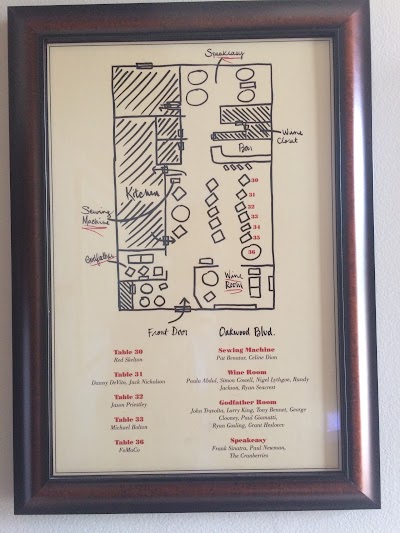 Speakeasy
Wine
Closet
Bar
Kitchen
30
31
32
33
34
35
36
Sewing
Machine
Godfather
Wine
Room
Front Door
Oakwood Blvd.
Table 30
Red Skelton
Table 31
Danny DeVito, Jack Nicholson
Table 32
Jason Priestley
Table 33
Michael Bolton
Table 36
FoMoCo
Sewing Machine
Pat Benatar, Celine Dion
Wine Room
Paula Abdul, Simon Cowell, Nigel Lythgoe, Randy
Jackson, Ryan Seacrest
Godfather Room
John Travolta, Larry King, Tony Bennet, George
Clooney, Paul Giamatti,
Ryan Gosling, Grant Heslov
Speakeasy
Frank Sinatra, Paul Newman,
The Cranberries